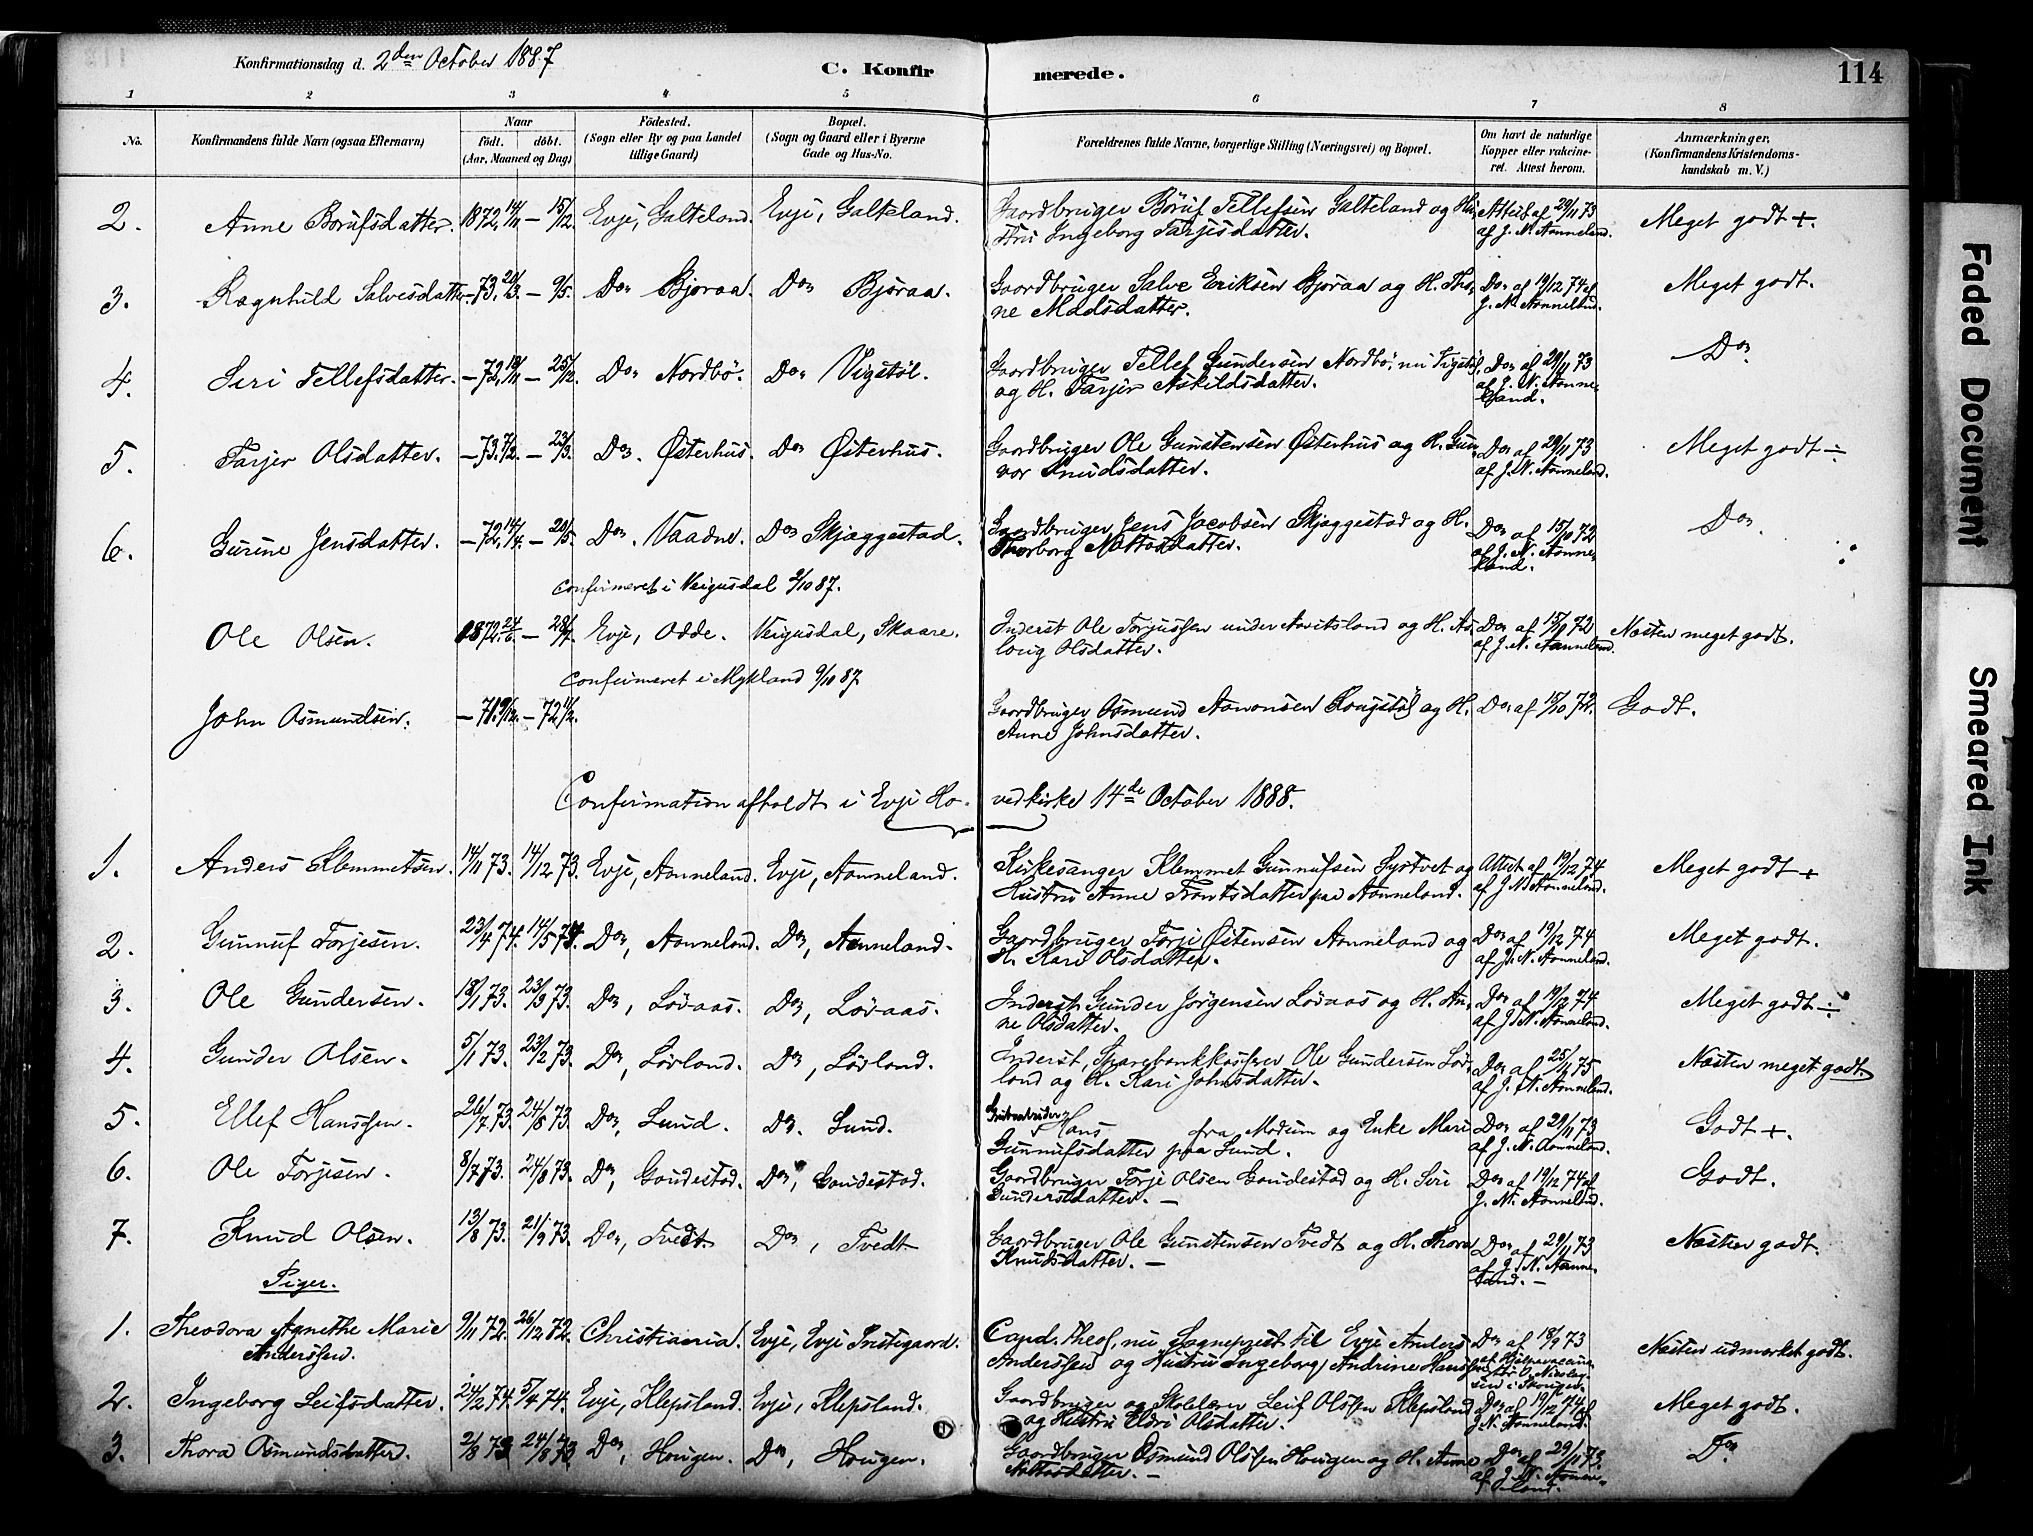 Konfirmationsdag d. 2den October 1887
C. Konfirmerede.
114
1 2 3 4 5 6 7 8
No.
Konfirmandens fulde Navn (ogsaa Efternavn)
Naar
födt. döbt.
(Aar, Maaned og Dag)
Födested.
(Sogn eller By og paa Landet
tillige Gaard)
Bopæl.
(Sogn og Gaard eller i Byerne
Gade og Hus-No.
Forældrenes fulde Navne, borgerlige Stilling (Næringsvei) og Bopæl.
Om havt de naturlige
Kopper eller vakcine-
ret. Attest herom.
Anmærkninger.
(Konfirmandens Kristendoms-
kundskab m. V.)
2. Anne Börufsdatter. 1872, 14/11 – 15/12. Evje, Galteland. Evje, Galteland. Gaardbruger Böruf Tellefsen Galteland og Hu- Attest af 29/11 73 Meget godt +.
stru Ingeborg Tarjesdatter. af J. N. Aanneland.
3. Ragnhild Salvesdatter – 73, 20/3. – 9/5. Do Bjoraa. Do Bjoraa. Gaardbruger Salve Eriksen Bjoraa og H. Tho- Do af 19/12 74 af Meget godt.
ne Madsdatter. J. N. Aanneland.
4. Siri Tellefsdatter. – 72, 19/11 – 25/12. Do Nordbö. Do Vigstöl. Gaardbruger Tellef Gundersen Nordbö, nu Vigstöl, Do af 29/11 73 Do
og H. Tarjer Askildsdatter. af J. N. Aanne-
land.
5. Tarjer Olsdatter. – 73. 7/2. – 23/3. Do. Østerhus. Do Østerhus. Gaardbruger Ole Gunstensen Østerhus og H. Gun- Do af 29/11 73 Meget godt ÷
vor Knudsdatter. af J. N. Aanneland.
6. Gurine Jensdatter. – 72, 14/4. – 20/5. Do. Vaadne. Do Skjaggestad. Gaardbruger Jens Jacobsen Skjaggestad og H. Do af 15/10 72 Do
Thorborg Nattosdatter. af J. N. Aanne-
land.
confirmeret i Veigusdal 2/10 87.
Ole Olsen. 1872. 24/6. – 28/7. Evje, Odde. Veigusdal, Skaare. Inderst Ole Torjussen under Aavitsland og H. As- Do af 15/10 72 Næsten meget godt.
loug Olsdatter. af J. N. Aanneland.
confirmeret i Mykland 9/10 87
John Osmundsen. – 71. 9/12. – 72 11/2. Gaardbruger Osmund Aanonsen Rougstöl og H. Do af 15/10 72. Godt.
Anne Johnsdatter.
Confirmation afholdt i Evje Ho- vedkirke 14de October 1888.
1. Anders Klemmetsen. 14/11 73. 14/12 73. Evje, Aanneland. Evje, Aanneland. Kirkesanger Klemmet Gunnufsen Systvet og Attest af 19/12 74 Meget godt +
Hustru Anne Trontsdatter paa Aanneland. af J. N. Aanneland.
2. Gunnuf Torjesen. 23/4 74. 14/5 74. Do, Aanneland. Do, Aanneland. Gaardbruger Torje Østensen Aanneland og Do af 19/12 74 Meget godt.
H. Kari Olsdatter. af J. N. Aanneland.
3. Ole Gundersen. 18/1 73. 23/3 73. Do, Lövaas. Do, Lövaas. Inderst Gunder Jörgensen Lövaas og H. An- Do af 19/12 74 Meget godt ÷
ne Olsdatter. af J. N. Aanneland.
4. Gunder Olsen. 5/1 73. 23/2 73. Do, Lövland. Do, Lövland. Inderst, Sparebankkasserer Ole Gundersen Löv- Do af 25/11 75 Næsten meget godt.
land og H. Kari Johnsdatter. af J. N. Aanneland.
5. Ellef Hanssen. 26/7 73. 24/8 73. Do, Lund. Do. Lund. Grubearbeider Hans fra Modum og Enke Mari Do af 29/11 73 Godt +.
Gunnufsdatter paa Lund. af J. N. Aanneland.
6. Ole Torjesen. 8/7 73. 24/8 73. Do, Gaudestad. Do, Gaudestad. Gaardbruger Torje Olsen Gaudestad og H. Siri Do af 19/12 74 af Godt.
Gundersdatter. – J. N. Aanneland.
7. Knud Olsen. 13/8 73. 21/9 73. Do, Tvedt. Do, Tvedt Gaardbruger Ole Gunstensen Tvedt og H. Thora Do af 29/11 73 Næsten godt.
Knudsdatter. – af J. N. Aanne-
land. –
Piger.
1. Theodora Agnethe Marie 9/11 72. 26/12 72. Christiania. Evje, Evje Prestegaard. Cand. theol., nu Sogneprest til Evje Anders Do af 18/9 73 Næsten udmærket godt.
Anderssen. Anderssen og Hustru Ingeborg Andrine Hanssen af Hjælpevaccina-
2. Ingeborg Leifsdatter. 24/2 74. 5/4 74. Evje, Klepsland. Evje, Klepsland. Gaardbruger og Skolelærer Leif Olsen Klepsland Do af 19/12 74 af Meget godt.
og Hustru Eldri Olsdatter. J. N. Aanneland.
3. Thora Osmundsdatter. 2/8 73 24/8 73. Do, Hougen. Do, Hougen. Gaardbruger Osmund Olsen Hougen og H. Anne Do af 29/11 73. Do
Nattosdatter. – af J. N. Aanne-
land.
Faded Document
Smeared Ink